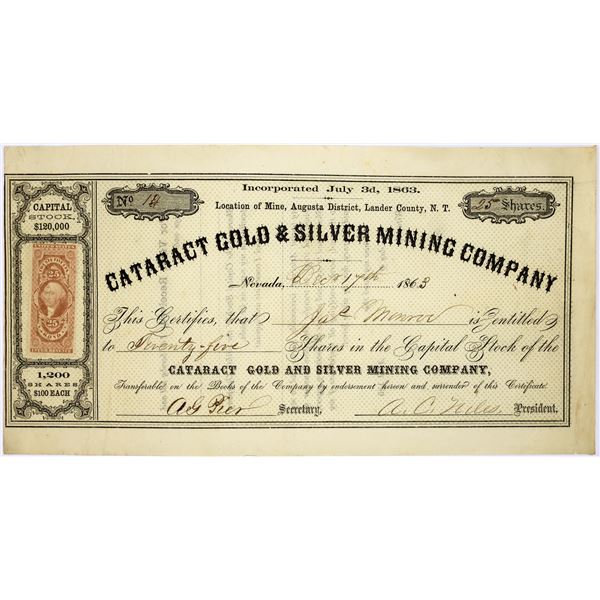 Incorporated July 3d, 1863.
No 14
Location of Mine, Augusta District, Lander County, N. T.
25 Shares.
CATARACT GOLD & SILVER MINING COMPANY
Nevada, Decr 17th 1863
This Certifies, that Jas. Monroe is entitled
to Twenty-five Shares in the Capital Stock of the
CATARACT GOLD AND SILVER MINING COMPANY,
Transferable on the Books of the Company by endorsement hereon and surrender of this Certificate.
Secretary.
A. C. Niles President.
CAPITAL
STOCK,
$120,000
25
25
1,200
SHARES
$100 EACH